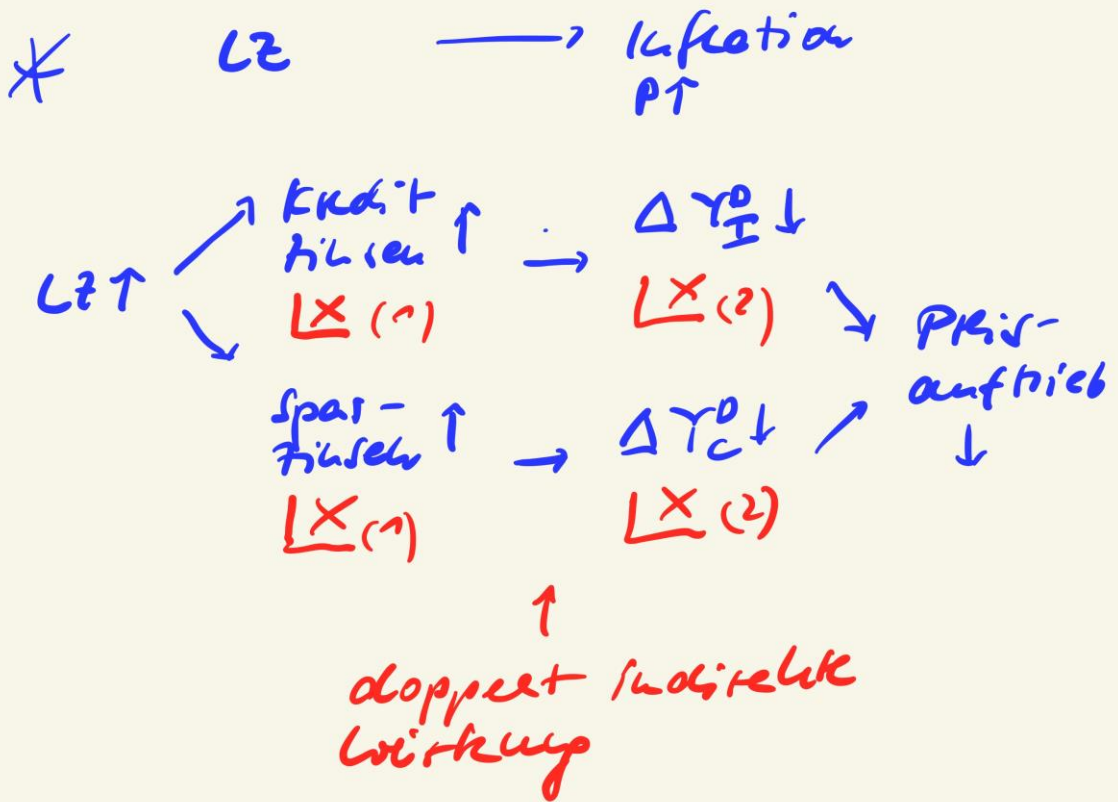 LZ → Inflation
P↑
Kredit
zinsen ↑ → Δ Y_I^D ↓
LZ↑
(1) (2)
Preis-
auftrieb
↓
Spar-
zinsen ↑ → Δ Y_C^D ↓
(1) (2)
↑
doppelt indirekte
Wirkung